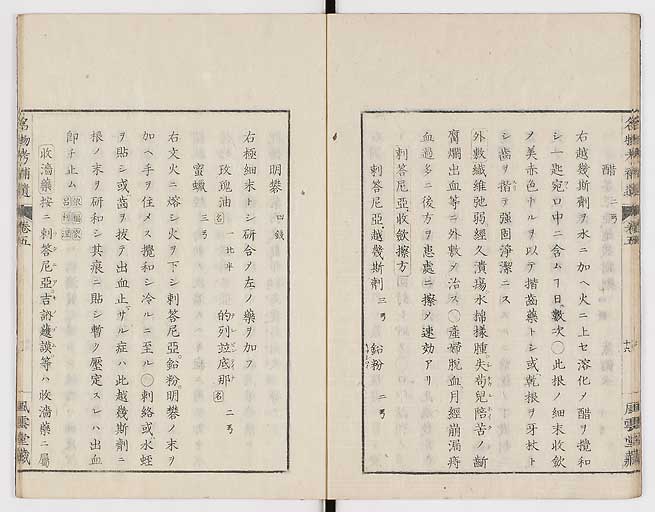 醋 二弓
右越幾斯劑ヲ水ニ加ヘ火ニ上セ溶化ノ醋ヲ攪和
シ一匙宛口中ニ含ム一日數次○此根ノ細末收歛
ノ美赤色ナルヲ以テ揩齒藥トシ或乾根ヲ牙杖ト
シ齒ヲ揩ヲ強固淨潔ニス
外敷纖維弛弱經久潰瘍水棉樣腫失苟兒陪苦ノ齗
腐爛出血等ニ外敷ノ治ス○產婦脫血月經崩漏痔
血過多ニ後方ヲ患處ニ擦ノ速効アリ
刺答尼亞收歛擦方
刺答尼亞越幾斯劑 三弓 鉛粉 二弓
明礬 四錢
右極細末トシ研合ノ左ノ藥ヲ加フ
玫瑰油 名 一北半 的列並底那 名 二弓
蜜蠟 三弓
右文火ニ熔シ火ヲ下シ刺答尼亞鉛粉明礬ノ末ヲ
加ヘ手ヲ住メス攪和シ冷ルニ至ル○刺絡或水蛭
ヲ貼シ或齒ヲ拔ヲ出血止ザル症ハ此越幾斯劑ニ
根ノ末ヲ研和シ其痕ニ貼シ暫ク壓定スレハ出血
卽チ止ム
收濇藥按ニ刺答尼亞吉納護謨等ハ收濇藥ニ屬
名物考補遺 卷五
風雲堂藏